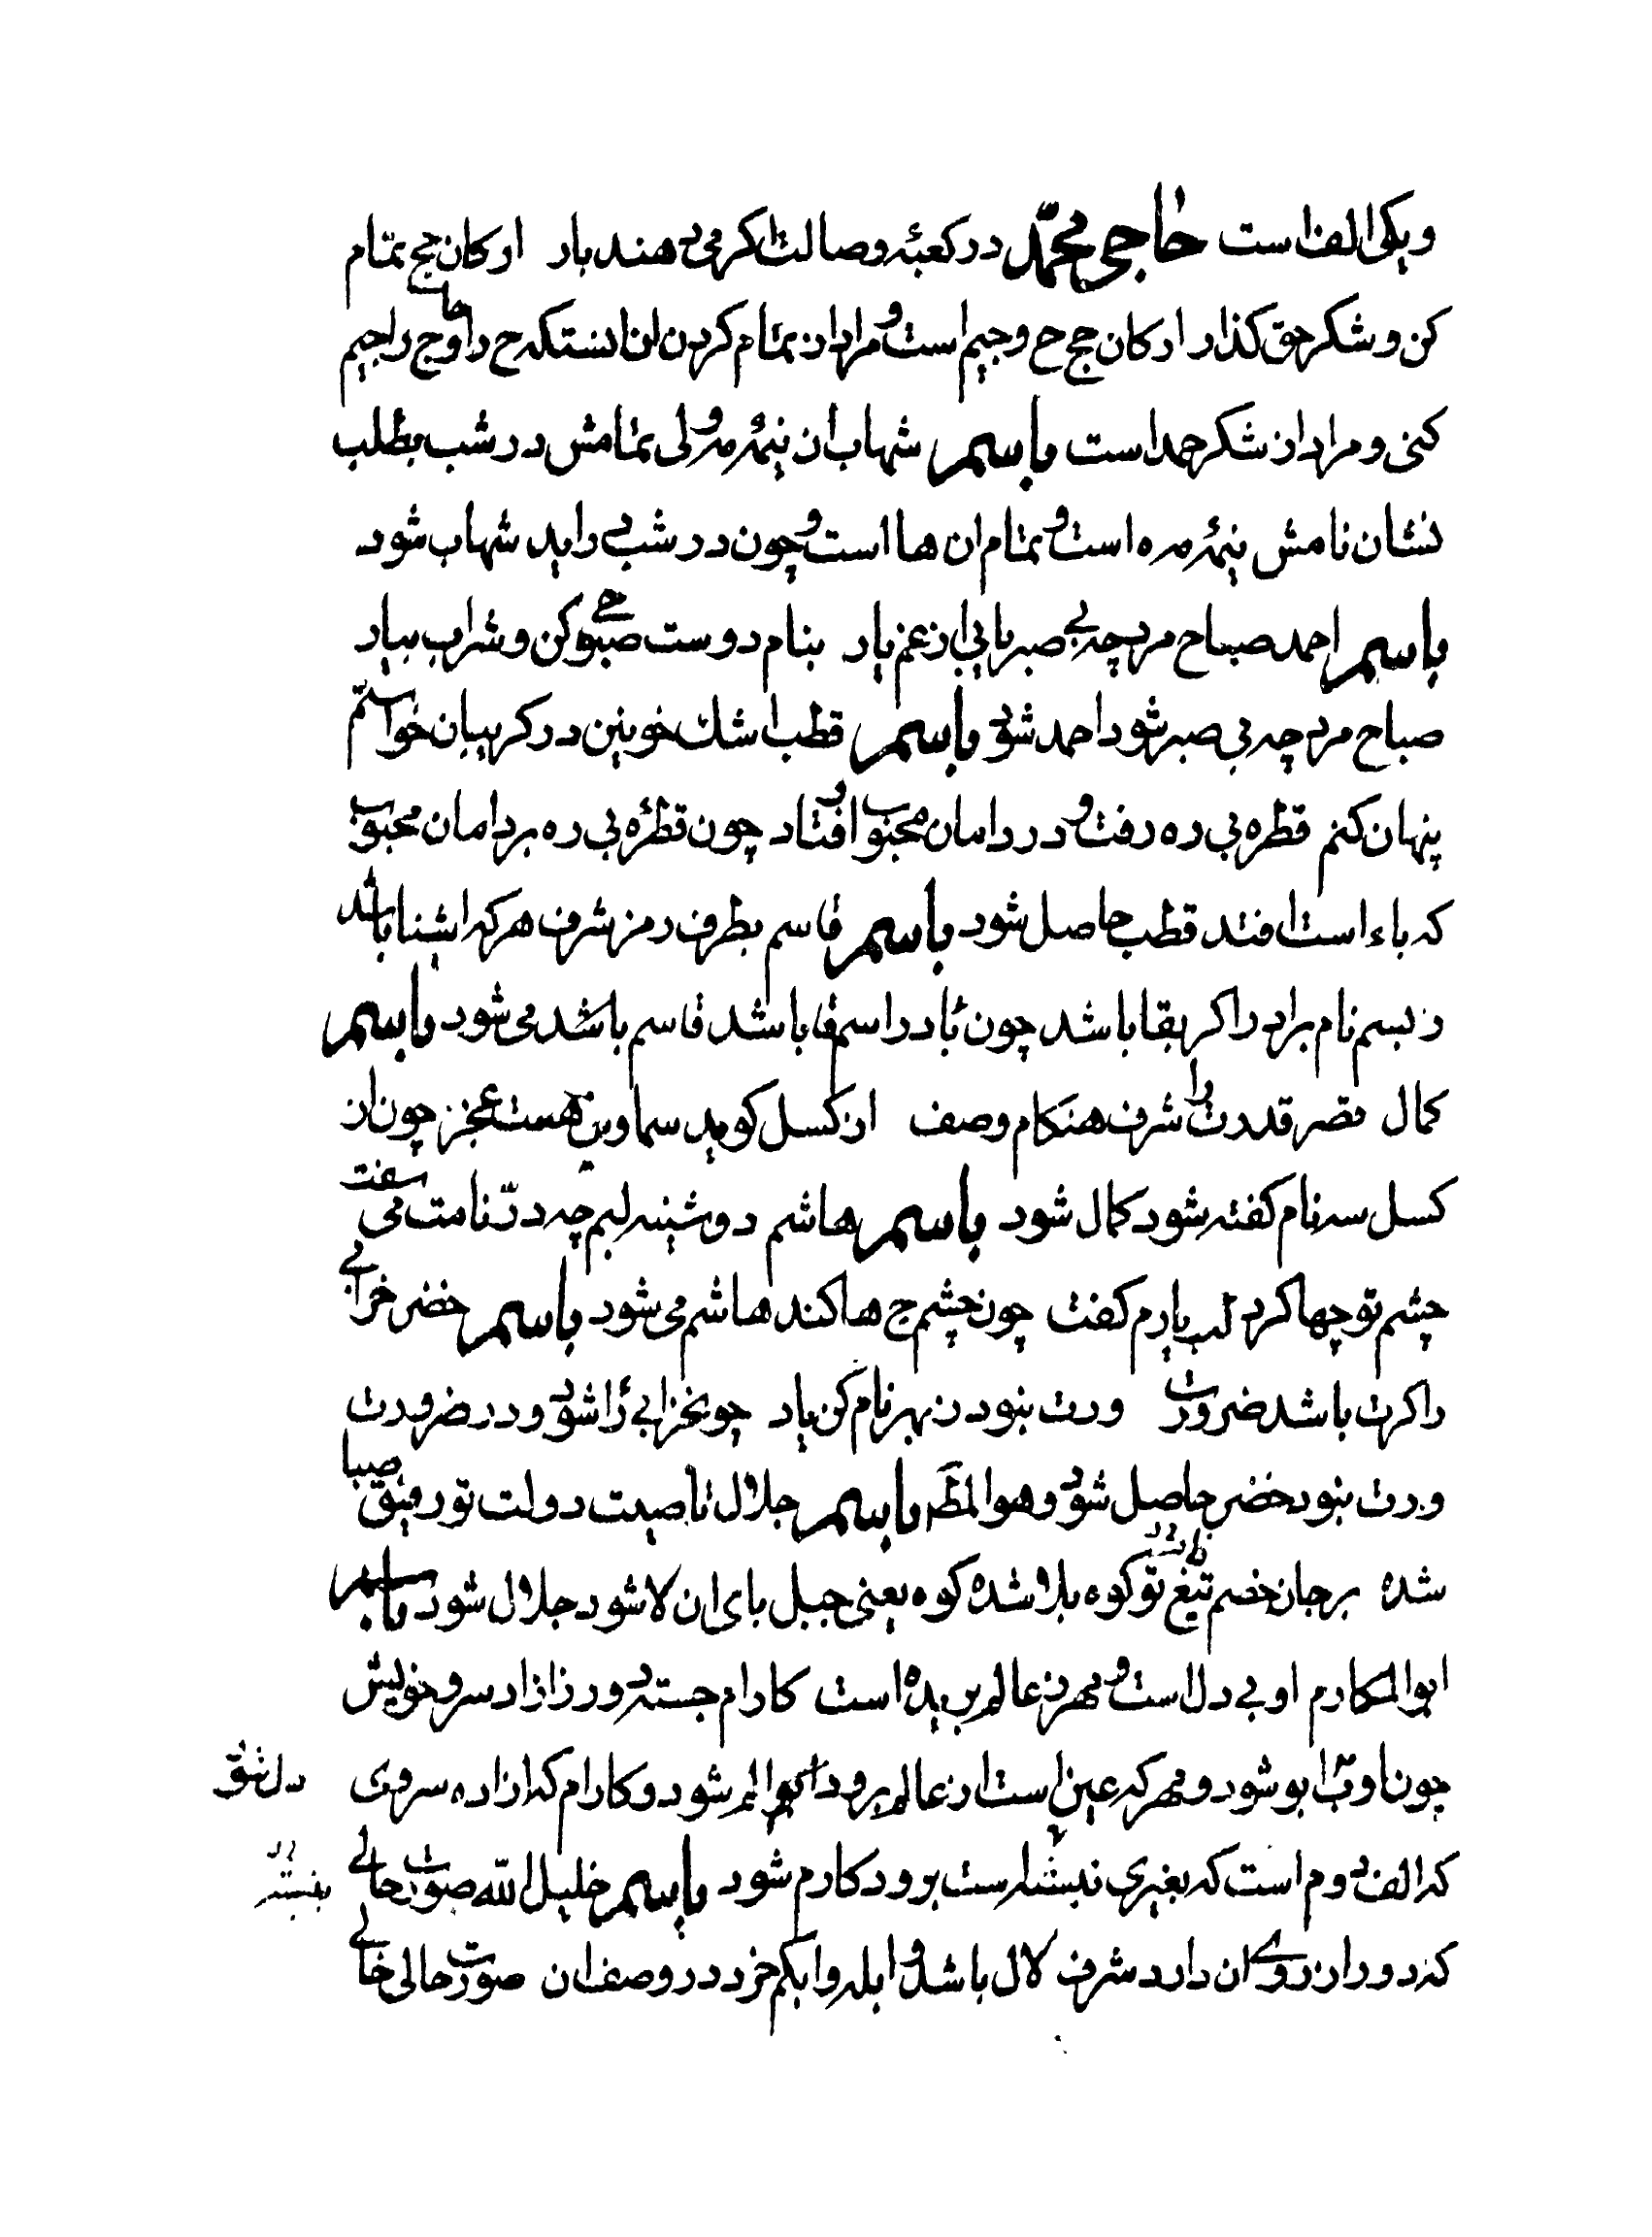 ویکی الف است حاجی محمّد در کعبهٔ وصالت اگر می دهند بار ارکان حج تمام
کن و شکر حق گذار ارکان حج ح و جیم است و مراد از تمام کردن آن انستکه ح را حا و ج را جیم
کنی و مراد از شکر حمد است باسم شهاب ان نیمهٔ مه ولی تمامش در شب بطلب
نشان نامش نیمهٔ مه ه است و تمام ان ها است و چون در شب بی را ید شهاب شود
باسم احمد صباح مرد چه بی صبر یابی از غم یار بنام دوست صبوحی کن و شراب بیار
صباح مرد چه بی صبر شود احمد شود باسم قطب اشک خونین در کریبان خواستم
پنهان کنم قطره بی ره رفت و در دامان محبوب افتاد چون قطرهٔ بی ره بر دامان محبوب
که باء است افتد قطب حاصل شود باسم قاسم بطرف رمز شرف هر که اشنا باشد
ز بسم نام برارد اگر بقا باشد چون با در اسم قا باشد قاسم باشد می شود باسم
کمال قصر قدرت را شرف هنکام وصف از کسل کوید سما وین هست عجز چون از
کسل سه نام کفته شود کمال شود باسم هاشم دوشینه لبم چه درّ نامت می سفت
چشم تو چها کرد لب یارم کفت چون چشم ج ها کند هاشم می شود باسم خضر خرابی
را کرت باشد ضرورت ورت نبود ز بهر نام کن یاد چو بخرابی را شود و در ضرورت
ورت نبود خضر حاصل شود و هو المط باسم جلال تا صیت دولت تو رفیق صبا
شده بر جان خصم تیغ تو کوه بلا شده کوه یعنی جبل بای ان لا شود جلال شود باسم
ابوالمکارم او بی دل است و مهر ز عالم بریده است کارام جسته دور ز ازاد سرو خویش
چون او با بو شود و مهر که عین است از عالم برود ابوالم شود و کارام که ازاده سروی
که الف دوم است که بغیری برود کارم شود باسم خلیل الله صورت حالی
که دوران روی ان دارد شرف لال باشد و ابله و ابکم خرد در وصف ان صورت حالی خالی
دل شق